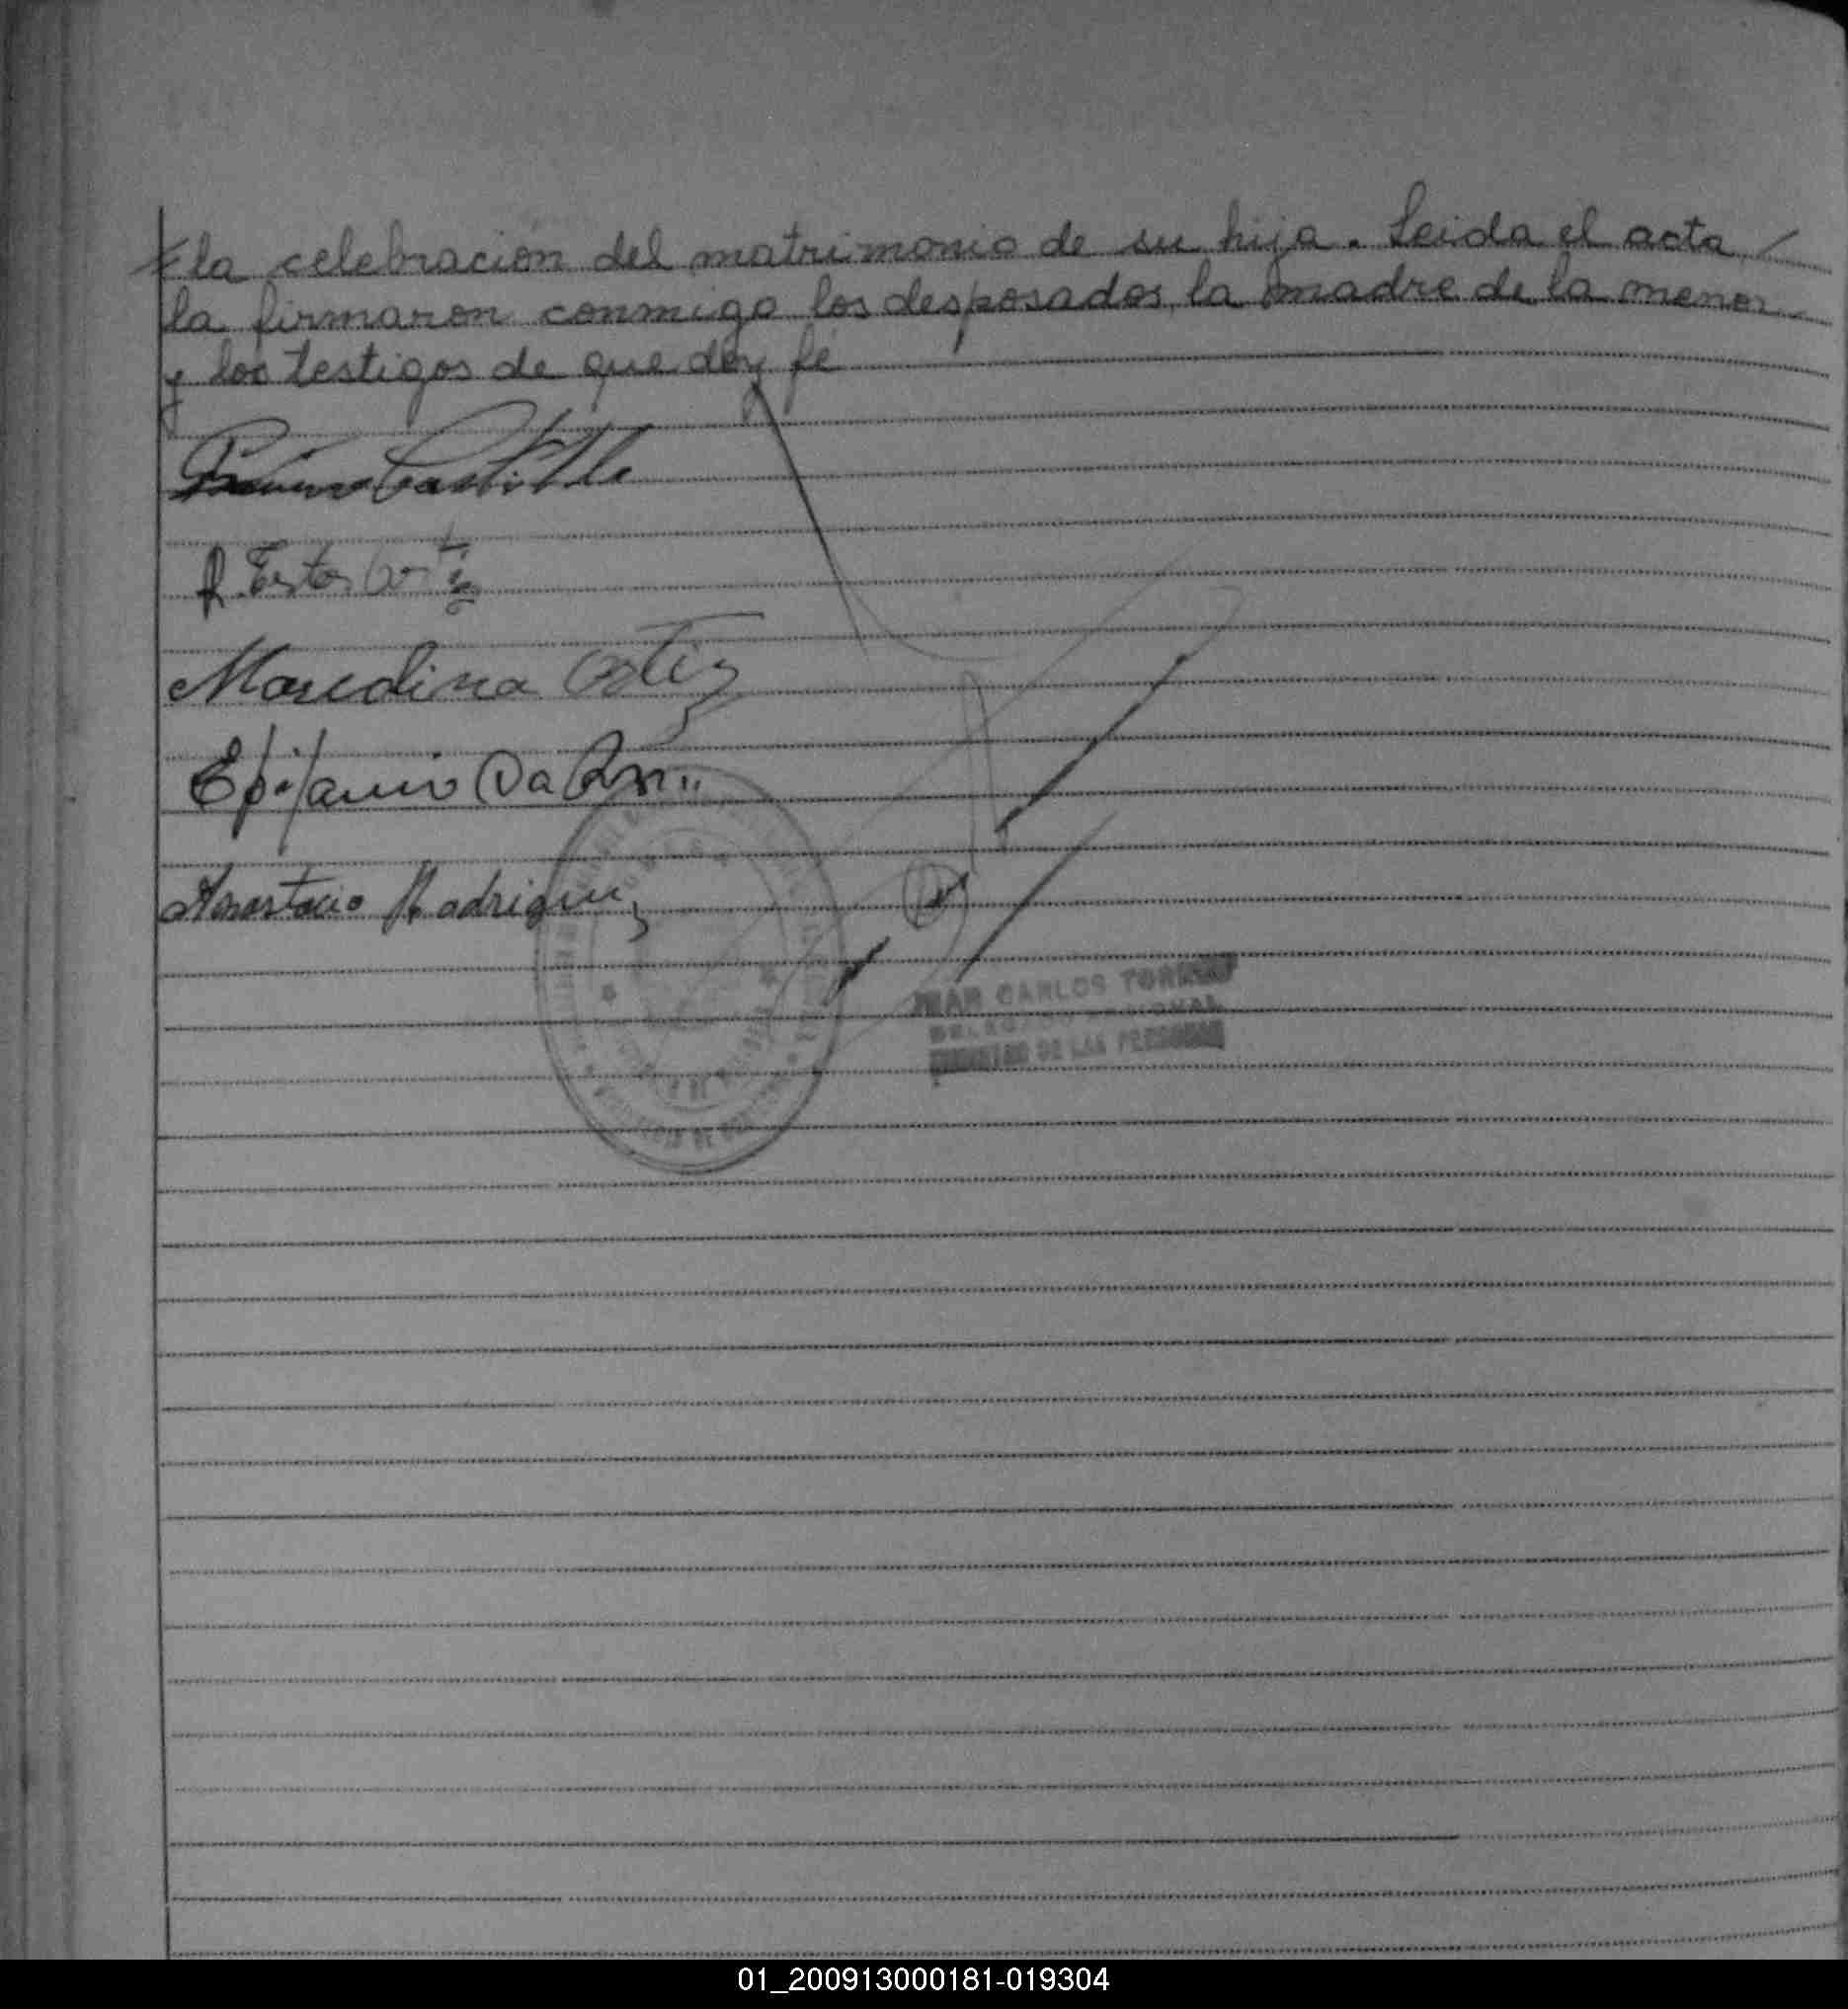 la celebración del matrimonio de su hija. Leida el acta,
la firmaron conmigo los desposados, la madre de la menor
y los testigos de que doy fé
Castillo
Ortiz
Marcelina Ortiz
Epifanio
Anastacio Rodriguez
JUAN CARLOS
DE LAS PERSONAS
01_200913000181-019304